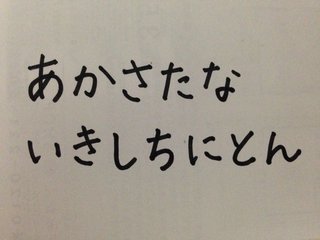 あかさたな
いきしちにとん